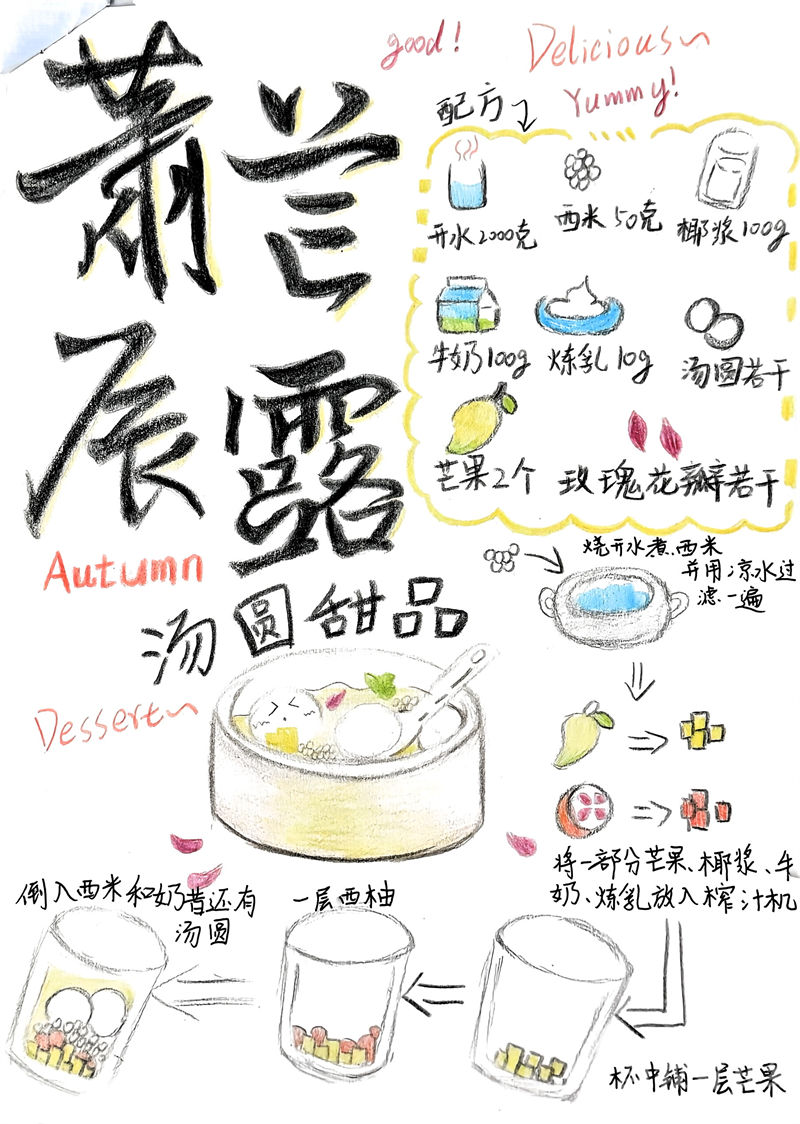 萧辰
芒露
Autumn
汤圆甜品
Dessert~
good!
Delicious~
Yummy!
配方
开水2000克
西米50克
椰浆100g
牛奶100g
炼乳10g
汤圆若干
芒果2个
玫瑰花瓣若干
烧开水煮西米
并用凉水过
滤一遍
将一部分芒果、椰浆、牛
奶、炼乳放入榨汁机
杯中铺一层芒果
一层西柚
倒入西米和奶昔还有
汤圆